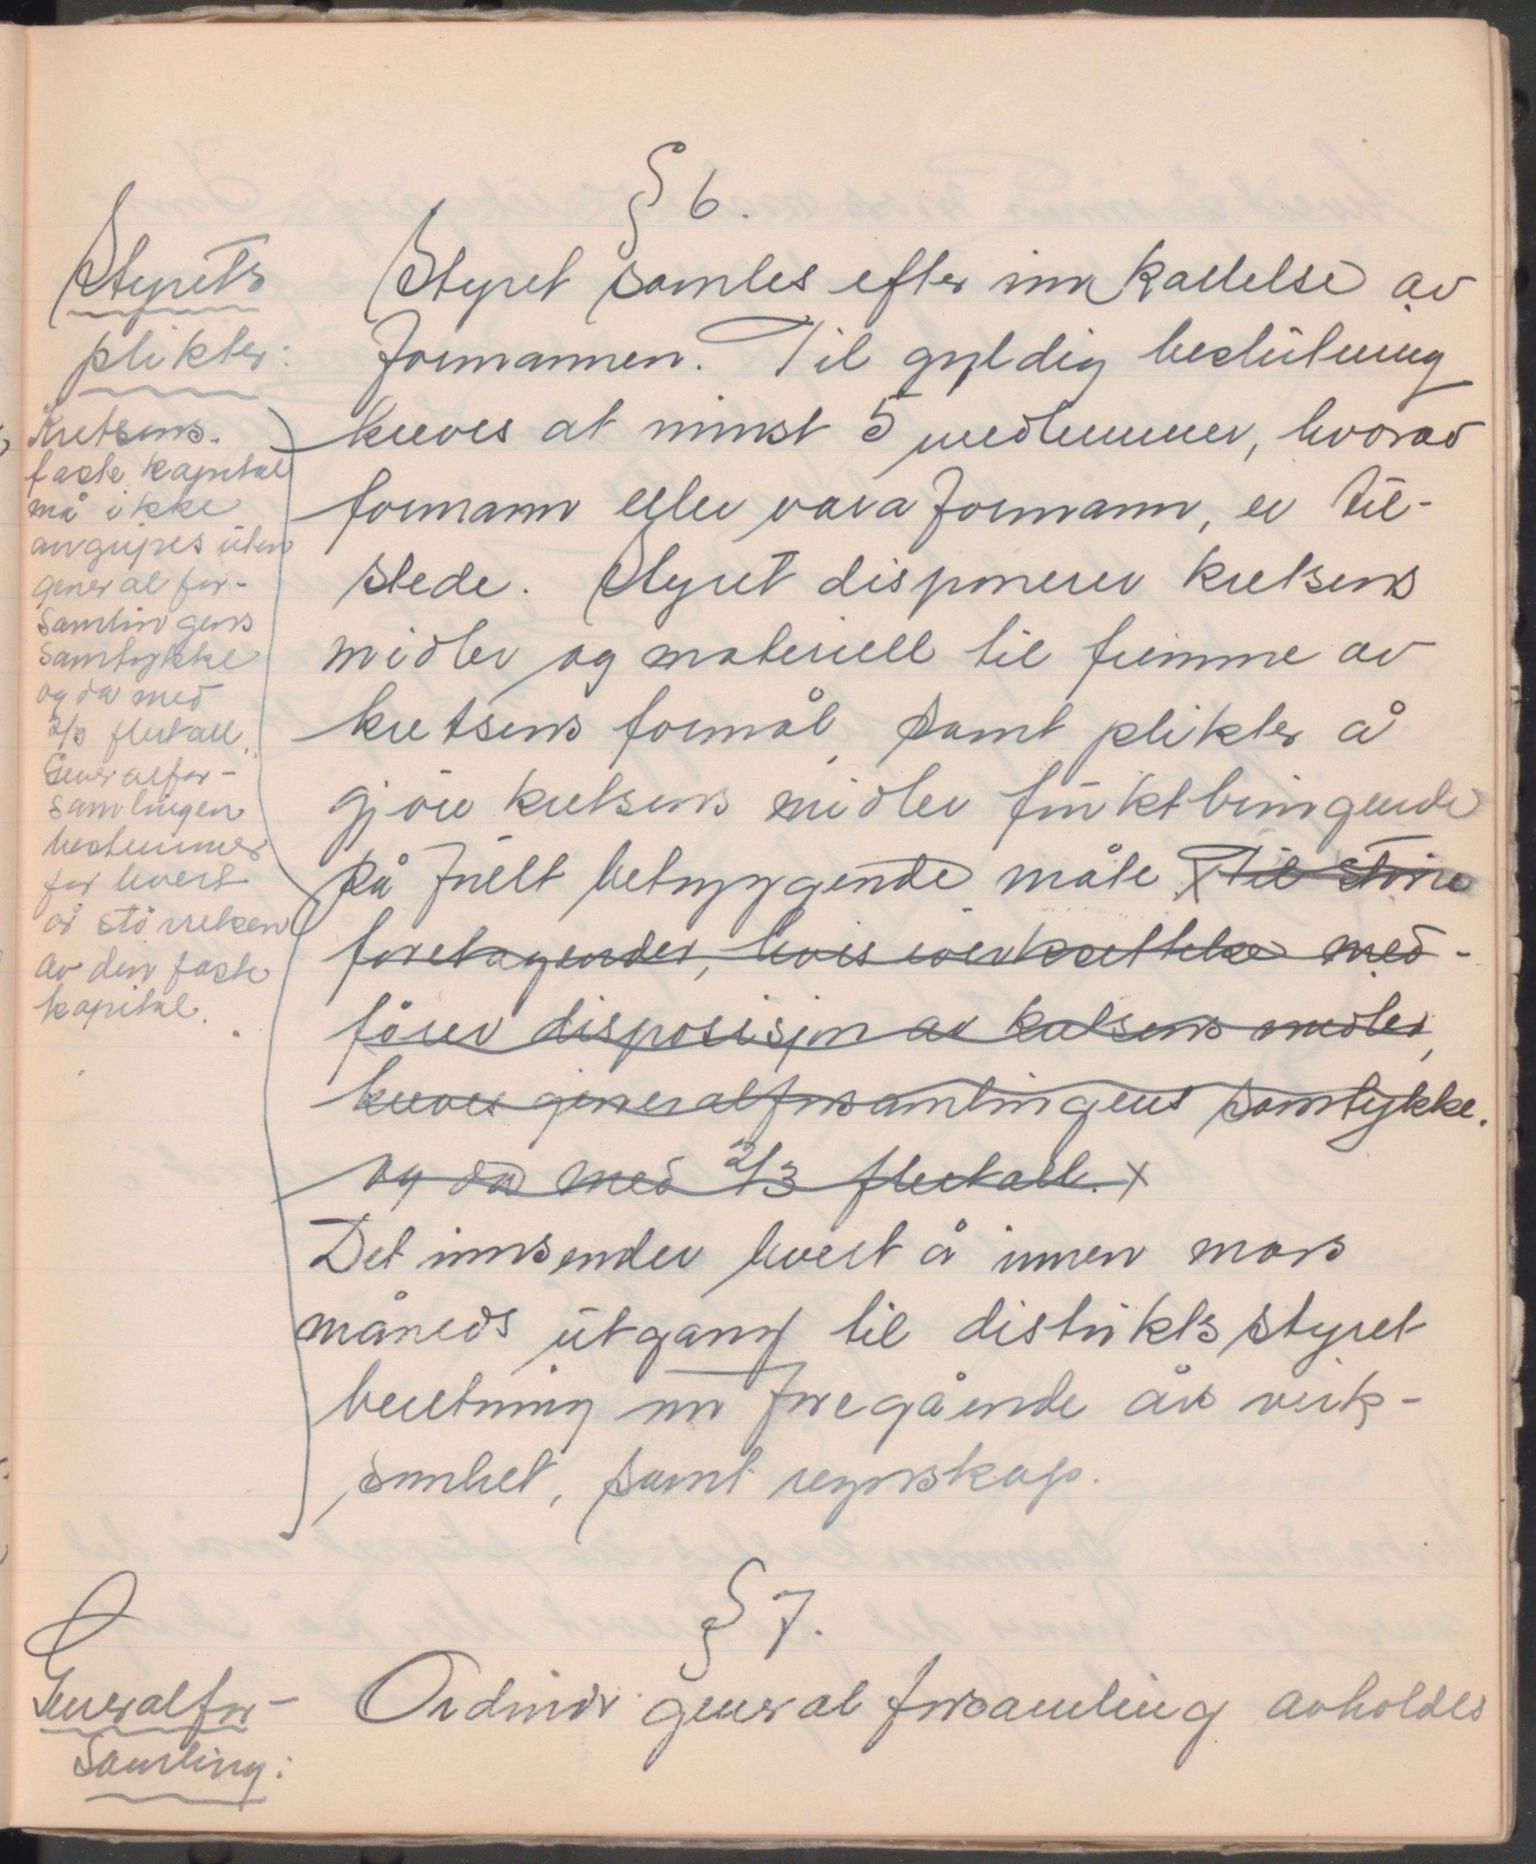 § 6.
Styrets
plikter:
Styret samles efter innkallelse av
formannen. Til gyldig beslutning
kreves at minst 5 medlemmer, hvorav
formann eller varaformann, er til-
stede. Styret disponerer kretsens
midler og materiell til fremme av
kretsens formål, samt plikter å
gjöre kretsens midler fruktbringende
på fuelt betryggende måte x Til större
foretagender, hvis iverksettelse med-
förer disposisjon av kretsens midler,
kreves generalforsamlingens samtykke.
og da med 2/3 flertall. x
Det innsender hvert å innen mars
måneds utgang til distriktsstyret
beretning om foregående års virk-
somhet, samt regnskap.
Kretsens
faste kapital
må ikke
angripes uten
generalfor-
samlingens
samtykke
og da med
2/3 flertall.
Generalfor-
samlingen
bestemmer
for hvert
år störrelsen
av den faste
kapital.
§ 7.
Generalfor-
samling:
Ordinær generalforsamling avholdes